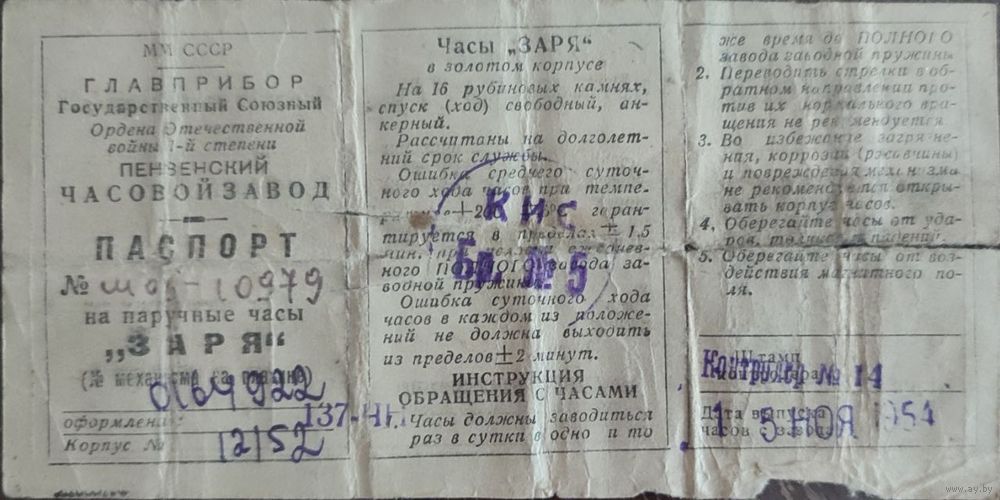 ММ СССР
ГЛАВПРИБОР
Государственный Союзный
Ордена Отечественной
войны 1-й степени
ПЕНЗЕНСКИЙ
ЧАСОВОЙ ЗАВОД
ПАСПОРТ
№ 10979
на наручные часы
„ЗАРЯ“
(№ механизма)
0164922
137-ЧН
оформление
Корпус № 12152
Часы „ЗАРЯ“
в золотом корпусе
На 16 рубиновых камнях,
спуск (ход) свободный, ан-
керный.
Рассчитаны на долголет-
ний срок службы.
Ошибка среднего суточ-
ного хода часов при темпе-
гаран-
тируется в пределах ± 1,5
мин. при ежеднев-
ного ПОЛНОГО завода за-
водной пружины.
КИС
БЛ №5
Ошибка суточного хода
часов в каждом из положе-
ний не должна выходить
из пределов ± 2 минут.
ИНСТРУКЦИЯ
ОБРАЩЕНИЯ С ЧАСАМИ
1. Часы должны заводиться
раз в сутки в одно и то
же время до ПОЛНОГО
завода заводной пружины.
2. Переводить стрелки в об-
ратном направлении про-
тив их нормального вра-
щения не рекомендуется.
3. Во избежание загрязне-
ния, коррозии (ржавчины)
и повреждения механизма
не рекомендуется откры-
вать корпус часов.
4. Оберегайте часы от уда-
ров, толчков и падений.
5. Оберегайте часы от воз-
действия магнитного по-
ля.
Штамп
контролера
Контролер № 14
Дата выпуска
часов с завода
1 5 НОЯ 1954
www.ay.by